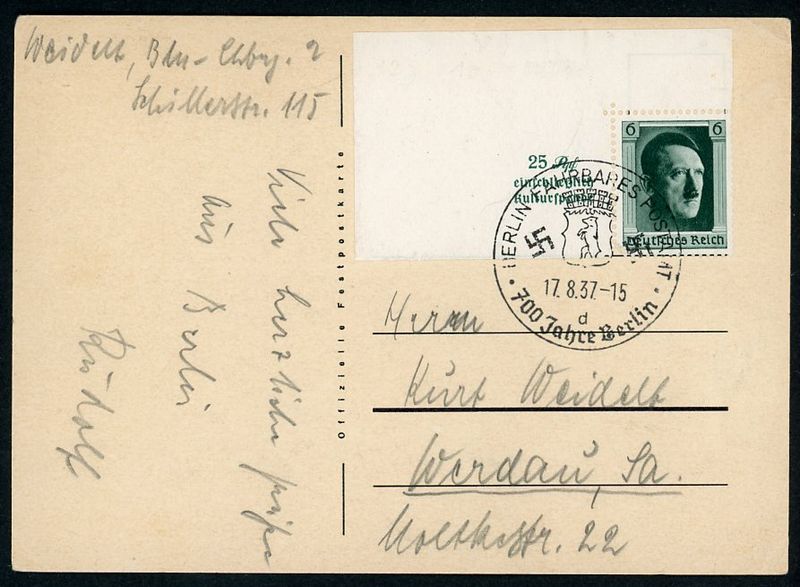 Weidelt, Bln-Chbg. 2
Schillerstr. 115
Viele herzliche Grüße
aus Berlin
Rudolf
Offizielle Festpostkarte
25 Pf.
einschließlich
Kulturspende
6 6
Deutsches Reich
BERLIN FAHRBARES POSTAMT
17.8.37.-15
d
700 Jahre Berlin
Herrn
Kurt Weidelt
Werdau, Sa.
Moltkestr. 22